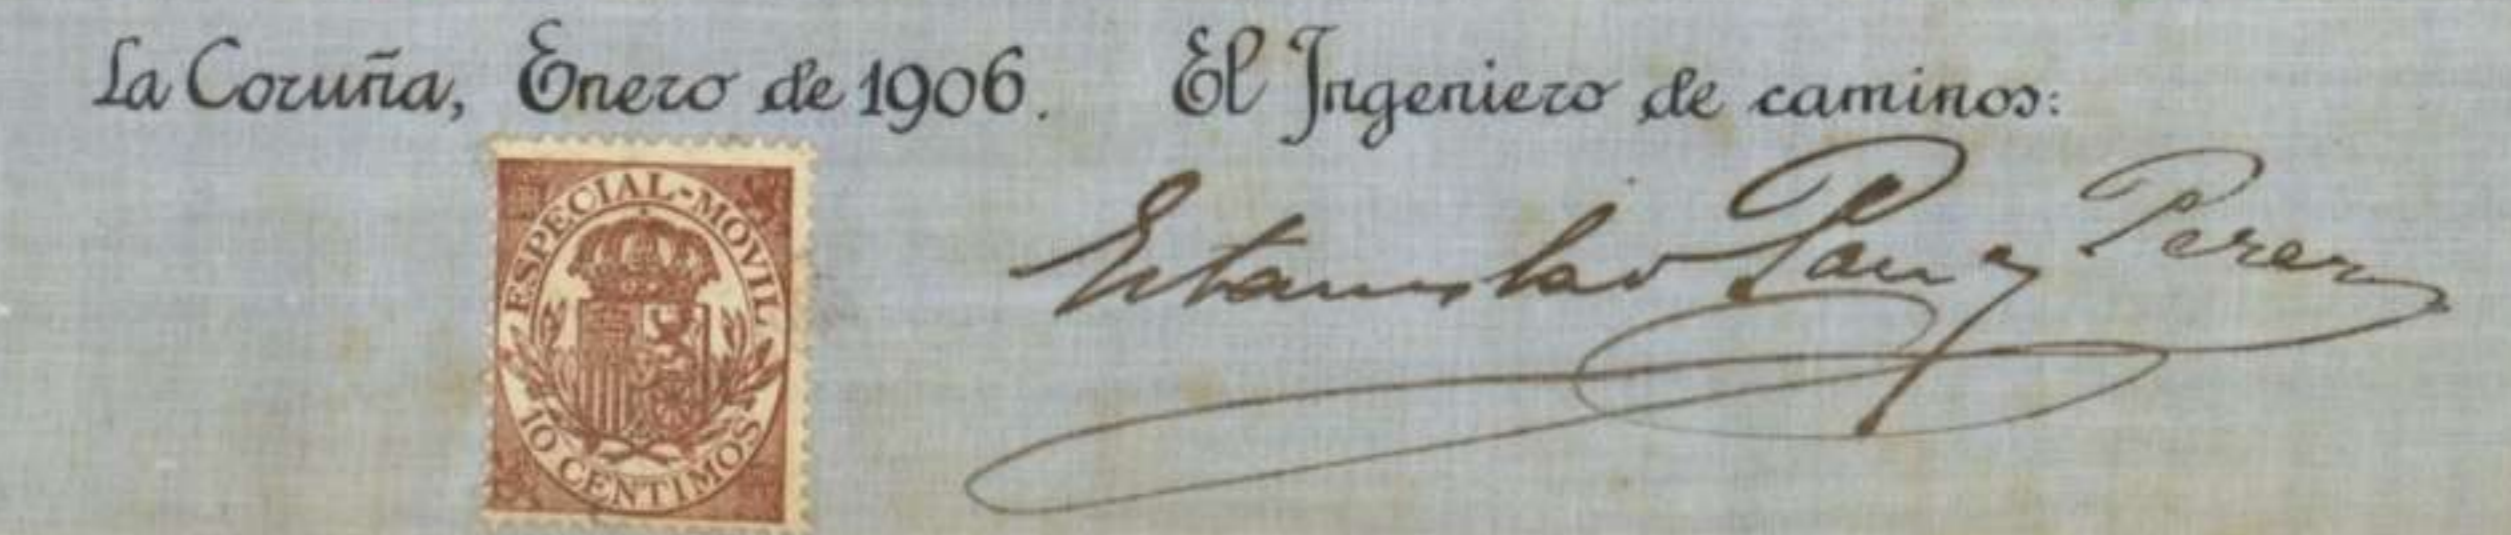 La Coruña, Enero de 1906. El Ingeniero de caminos:
ESPECIAL-MOVIL
10 CENTIMOS
Estanislao Pan y Perez